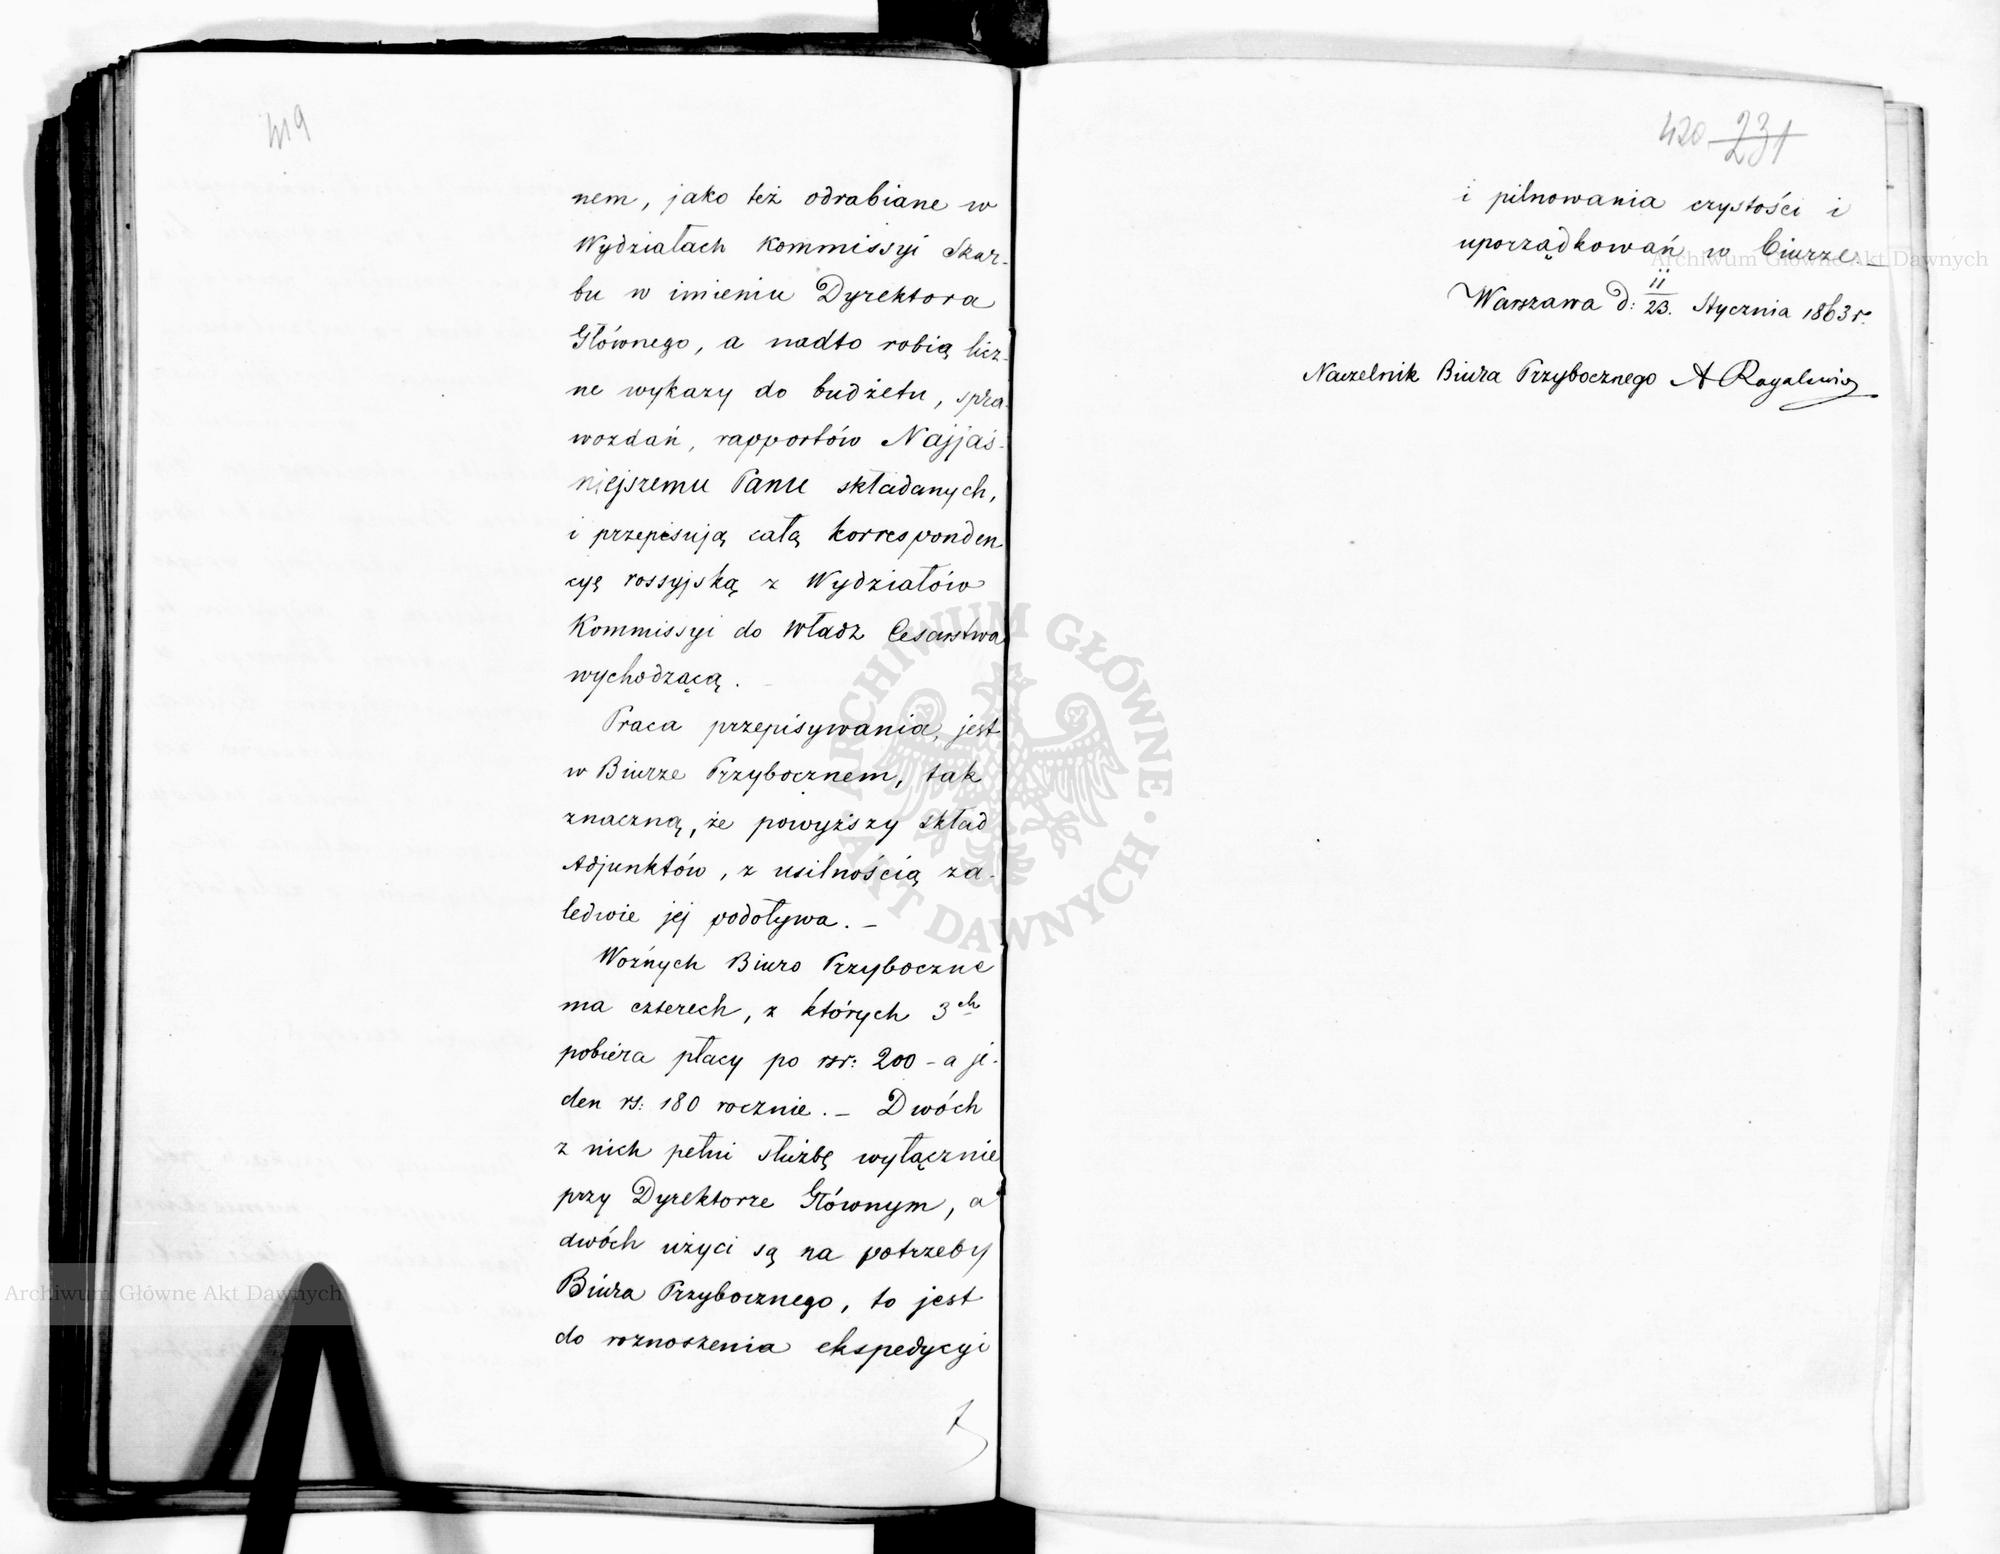 419
nem, jako też odrabiane w
Wydziałach Kommissyi Skar-
bu w imieniu Dyrektora
Głównego, a nadto robią licz-
ne wykazy do budżetu, spra-
wozdań, rapportów Najjaś-
niejszemu Panu składanych,
i przepisują całą korresponden
cyę rossyjską z Wydziałów
Kommissyi do Władz Cesarstwa
wychodzącą.
Praca przepisywania, jest
w Biurze Przybocznem, tak
znaczną, że powyższy skład
Adjunktów, z usilnością za-
ledwie jej podoływa. –
Woźnych Biuro Przyboczne
ma czterech, z których 3ch
pobiera płacy po rsr: 200 – a je-
den rs: 180 rocznie. – Dwóch
z nich pełni służbę wyłącznie
przy Dyrektorze Głównym, a
dwóch użyci są na potrzeby
Biura Przybocznego, to jest
do roznoszenia ekspedycyi
420 231
i pilnowania czystości i
uporządkowań w biurze. –
Warszawa d: 11/23. Stycznia 1863 r.
Naczelnik Biura Przybocznego A Rogalewicz
ARCHIWUM GŁÓWNE AKT DAWNYCH
Archiwum Główne Akt Dawnych
Archiwum Główne Akt Dawnych